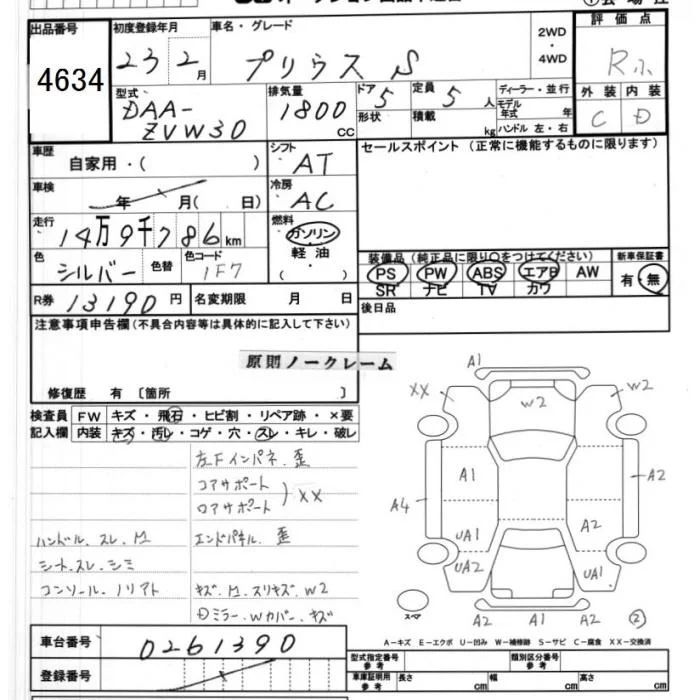 出品番号
4634
初度登録年月
23 2月
車名・グレード
プリウス S
2WD
・
4WD
評価点
R
外装 内装
C D
型式
DAA-
ZVW30
排気量
1800 CC
ドア 5
形状
定員 5 人
積載 kg
ディーラー・並行
モデル年式 年
ハンドル 左・右
車歴
自家用・( )
シフト
AT
セールスポイント(正常に機能するものに限ります)
車検
年 月( 日)
冷房
AC
走行
14万9千786km
燃料
ガソリン
軽油
( )
色
シルバー
色替
色コード
1F7
装備品(純正品に限り○をつけてください)
PS PW ABS エアB AW
SR ナビ TV カワ
新車保証書
有・無
R券 13190円
名変期限 月 日
後日品
注意事項申告欄(不具合内容等は具体的に記入して下さい)
原則ノークレーム
修復歴 有〔箇所 〕
検査員
記入欄
FW キズ・飛石・ヒビ割・リペア跡・×要
内装 キズ・汚レ・コゲ・穴・スレ・キレ・破レ
左Fインパネ.歪
コアサポート
ロアサポート
XX
ハンドル.スレ.M
エンドパネル.歪
シート.スレ.シミ
コンソール.ノリアト
キズ.M.スリキズ.W2
Dミラー.Wカバー.キズ
A1
XX
W2
W2
A1
A2
A4
UA1
A2
UA2
UA1
スペア
A2
A1
A2
2
A-キズ E-エクボ U-凹み W-補修跡 S-サビ C-腐食 XX-交換済
車台番号
0261390
登録番号
型式指定番号
参考
類別区分番号
参考
車庫証明用
参考
長さ cm
幅 cm
高さ cm